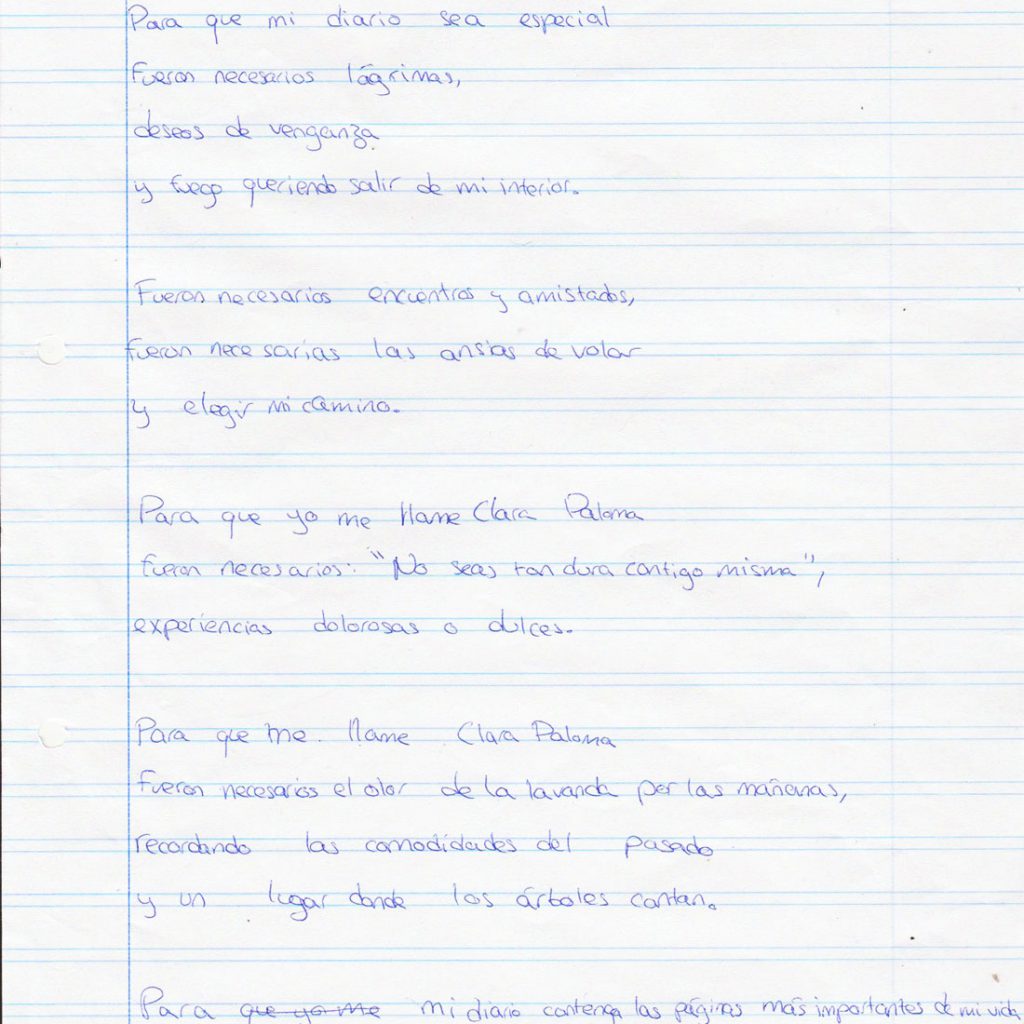 Para que mi diario sea especial
Fueron necesarios lágrimas,
deseos de venganza
y fuego queriendo salir de mi interior.
Fueron necesarios encuentros y amistades,
fueron necesarias las ansias de volar
y elegir mi camino.
Para que yo me llame Clara Paloma
fueron necesarios: "No seas tan dura contigo misma",
experiencias dolorosas o dulces.
Para que me llame Clara Paloma
Fueron necesarios el olor de la lavanda por las mañanas,
recordando las comodidades del pasado
y un lugar donde los árboles cantan.
Para que yo me mi diario contenga las páginas más importantes de mi vida